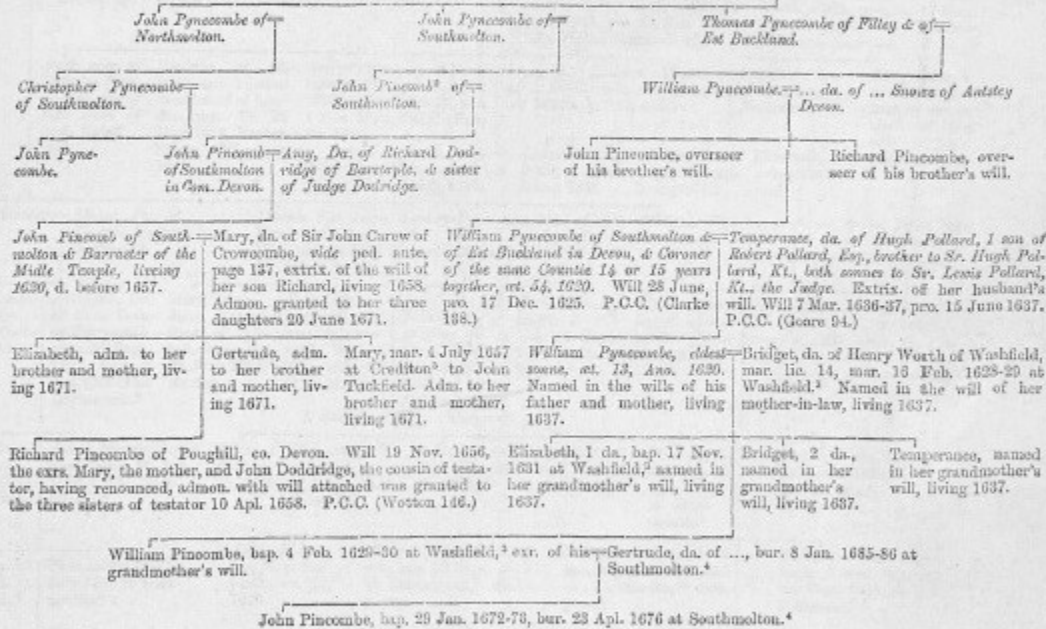 John Pynecombe of
Northmolton.
John Pynecombe of
Southmolton.
Thomas Pynecombe of Filley & of
Est Buckland.
Christopher Pynecombe
of Southmolton.
John Pincomb² of
Southmolton.
William Pynecombe. ... da. of ... Snowe of Autstey
Devon.
John Pyne-
combe.
John Pincomb
of Southmolton
in Com. Devon.
Amy, Da. of Richard Dod-
ridge of Barstaple, & sister
of Judge Dodridge.
John Pincombe, overseer
of his brother's will.
Richard Pincombe, over-
seer of his brother's will.
John Pincomb of South-
molton & Barraster of the
Midle Temple, liveing
1620, d. before 1657.
Mary, da. of Sir John Carew of
Crowcombe, vide ped. ante,
page 137, extrix. of the will of
her son Richard, living 1658.
Admon. granted to her three
daughters 20 June 1671.
William Pynecombe of Southmolton &
of Est Buckland in Devon, & Coroner
of the same Countie 14 or 15 years
together, æt. 54, 1620. Will 28 June,
pro. 17 Dec. 1625. P.C.C. (Clarke
138.)
Temperance, da. of Hugh Pollard, 1 son of
Robert Pollard, Esq., brother to Sr. Hugh Pol-
lard, Kt., both sonnes to Sr. Lewis Pollard,
Kt., the Judge. Extrix. of her husband's
will. Will 7 Mar. 1636-37, pro. 15 June 1637.
P.C.C. (Goare 94.)
Elizabeth, adm. to her
brother and mother, liv-
ing 1671.
Gertrude, adm.
to her brother
and mother, liv-
ing 1671.
Mary, mar. 4 July 1657
at Crediton⁵ to John
Tuckfield. Adm. to her
brother and mother,
living 1671.
William Pynecombe, eldest
sonne, æt. 13, Ano. 1620.
Named in the wills of his
father and mother, living
1637.
Bridget, da. of Henry Worth of Washfield,
mar. lic. 14, mar. 16 Feb. 1628-29 at
Washfield.³ Named in the will of her
mother-in-law, living 1637.
Richard Pincombe of Poughill, co. Devon. Will 19 Nov. 1656,
the exrs. Mary, the mother, and John Doddridge, the cousin of testa-
tor, having renounced, admon. with will attached was granted to
the three sisters of testator 10 Apl. 1658. P.C.C. (Wotton 146.)
Elizabeth, 1 da., bap. 17 Nov.
1631 at Washfield,³ named in
her grandmother's will, living
1637.
Bridget, 2 da.,
named in her
grandmother's
will, living 1637.
Temperance, named
in her grandmother's
will, living 1637.
William Pincombe, bap. 4 Feb. 1629-30 at Washfield,³ exr. of his
grandmother's will.
Gertrude, da. of ..., bur. 8 Jan. 1685-86 at
Southmolton.⁴
John Pincombe, bap. 29 Jan. 1672-73, bur. 23 Apl. 1676 at Southmolton.⁴